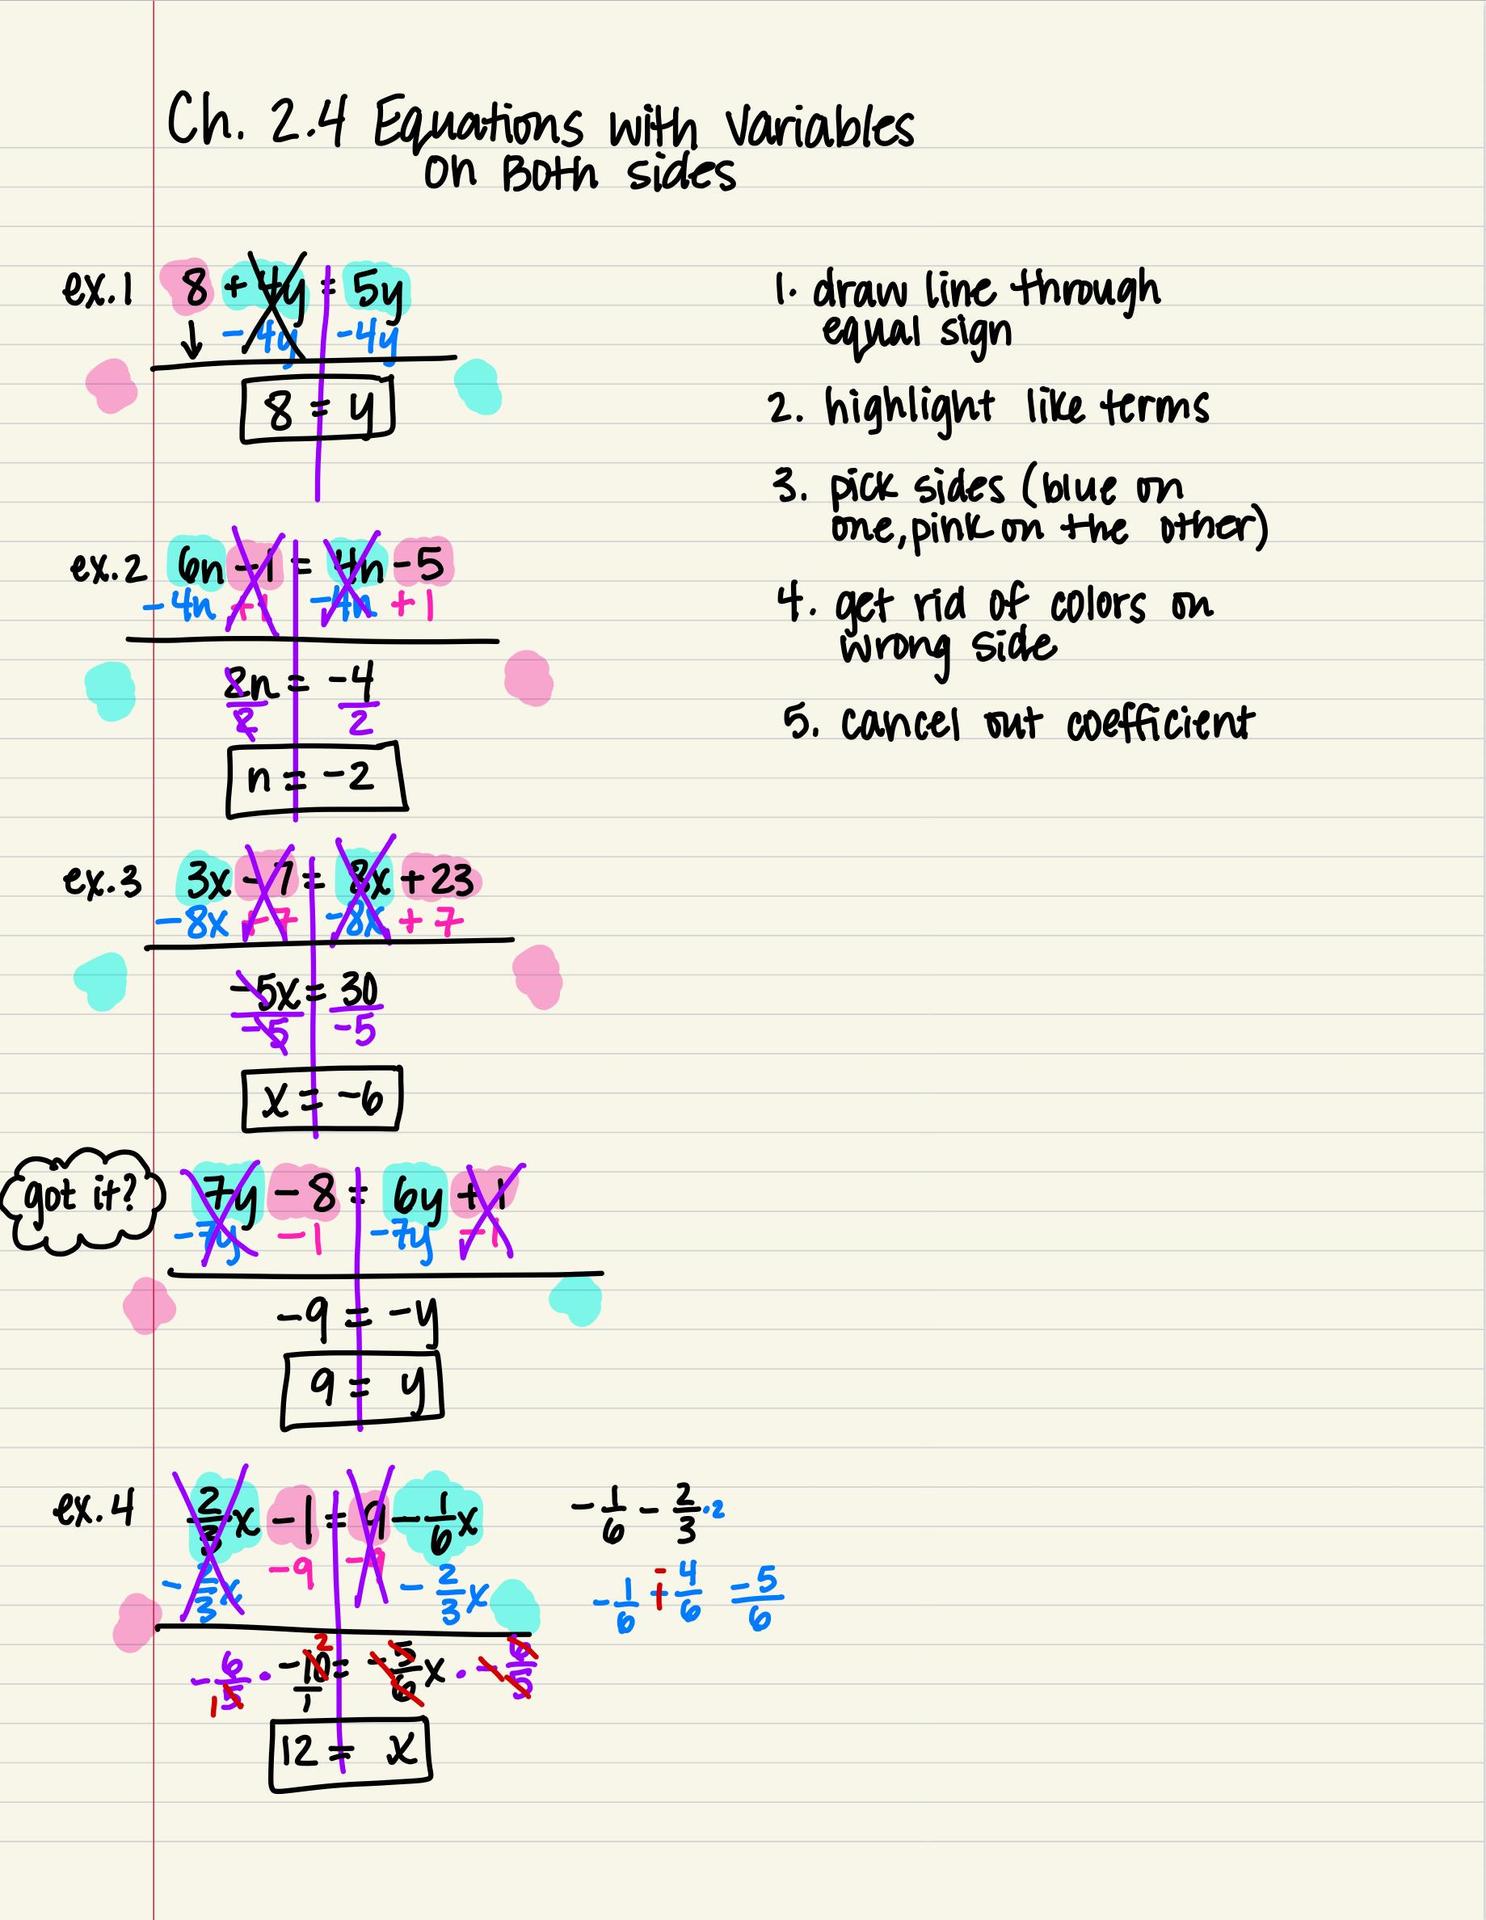 Ch. 2.4 Equations with Variables
on Both sides
ex.1 8 + 4y = 5y
- 4y -4y
8 = y
1. draw line through
equal sign
2. highlight like terms
3. pick sides (blue on
one, pink on the other)
4. get rid of colors on
wrong side
5. cancel out coefficient
ex.2 6n - 1 = 4n - 5
- 4n + 1 - 4n + 1
2n = -4
2 2
n = -2
ex.3 3x - 7 = 8x + 23
- 8x + 7 - 8x + 7
-5x = 30
-5 -5
x = -6
got it? 7y - 8 = 6y + 1
- 7y - 1 - 7y - 1
-9 = -y
9 = y
ex.4 2/3 x - 1 = 9 - 1/6 x
- 2/3 x - 9 - 9 - 2/3 x
- 1/6 - 2/3 ·2
- 1/6 + - 4/6 -5/6
- 6/5 1 · -10/1 2 = - 5/6 x · - 6/5
12 = x